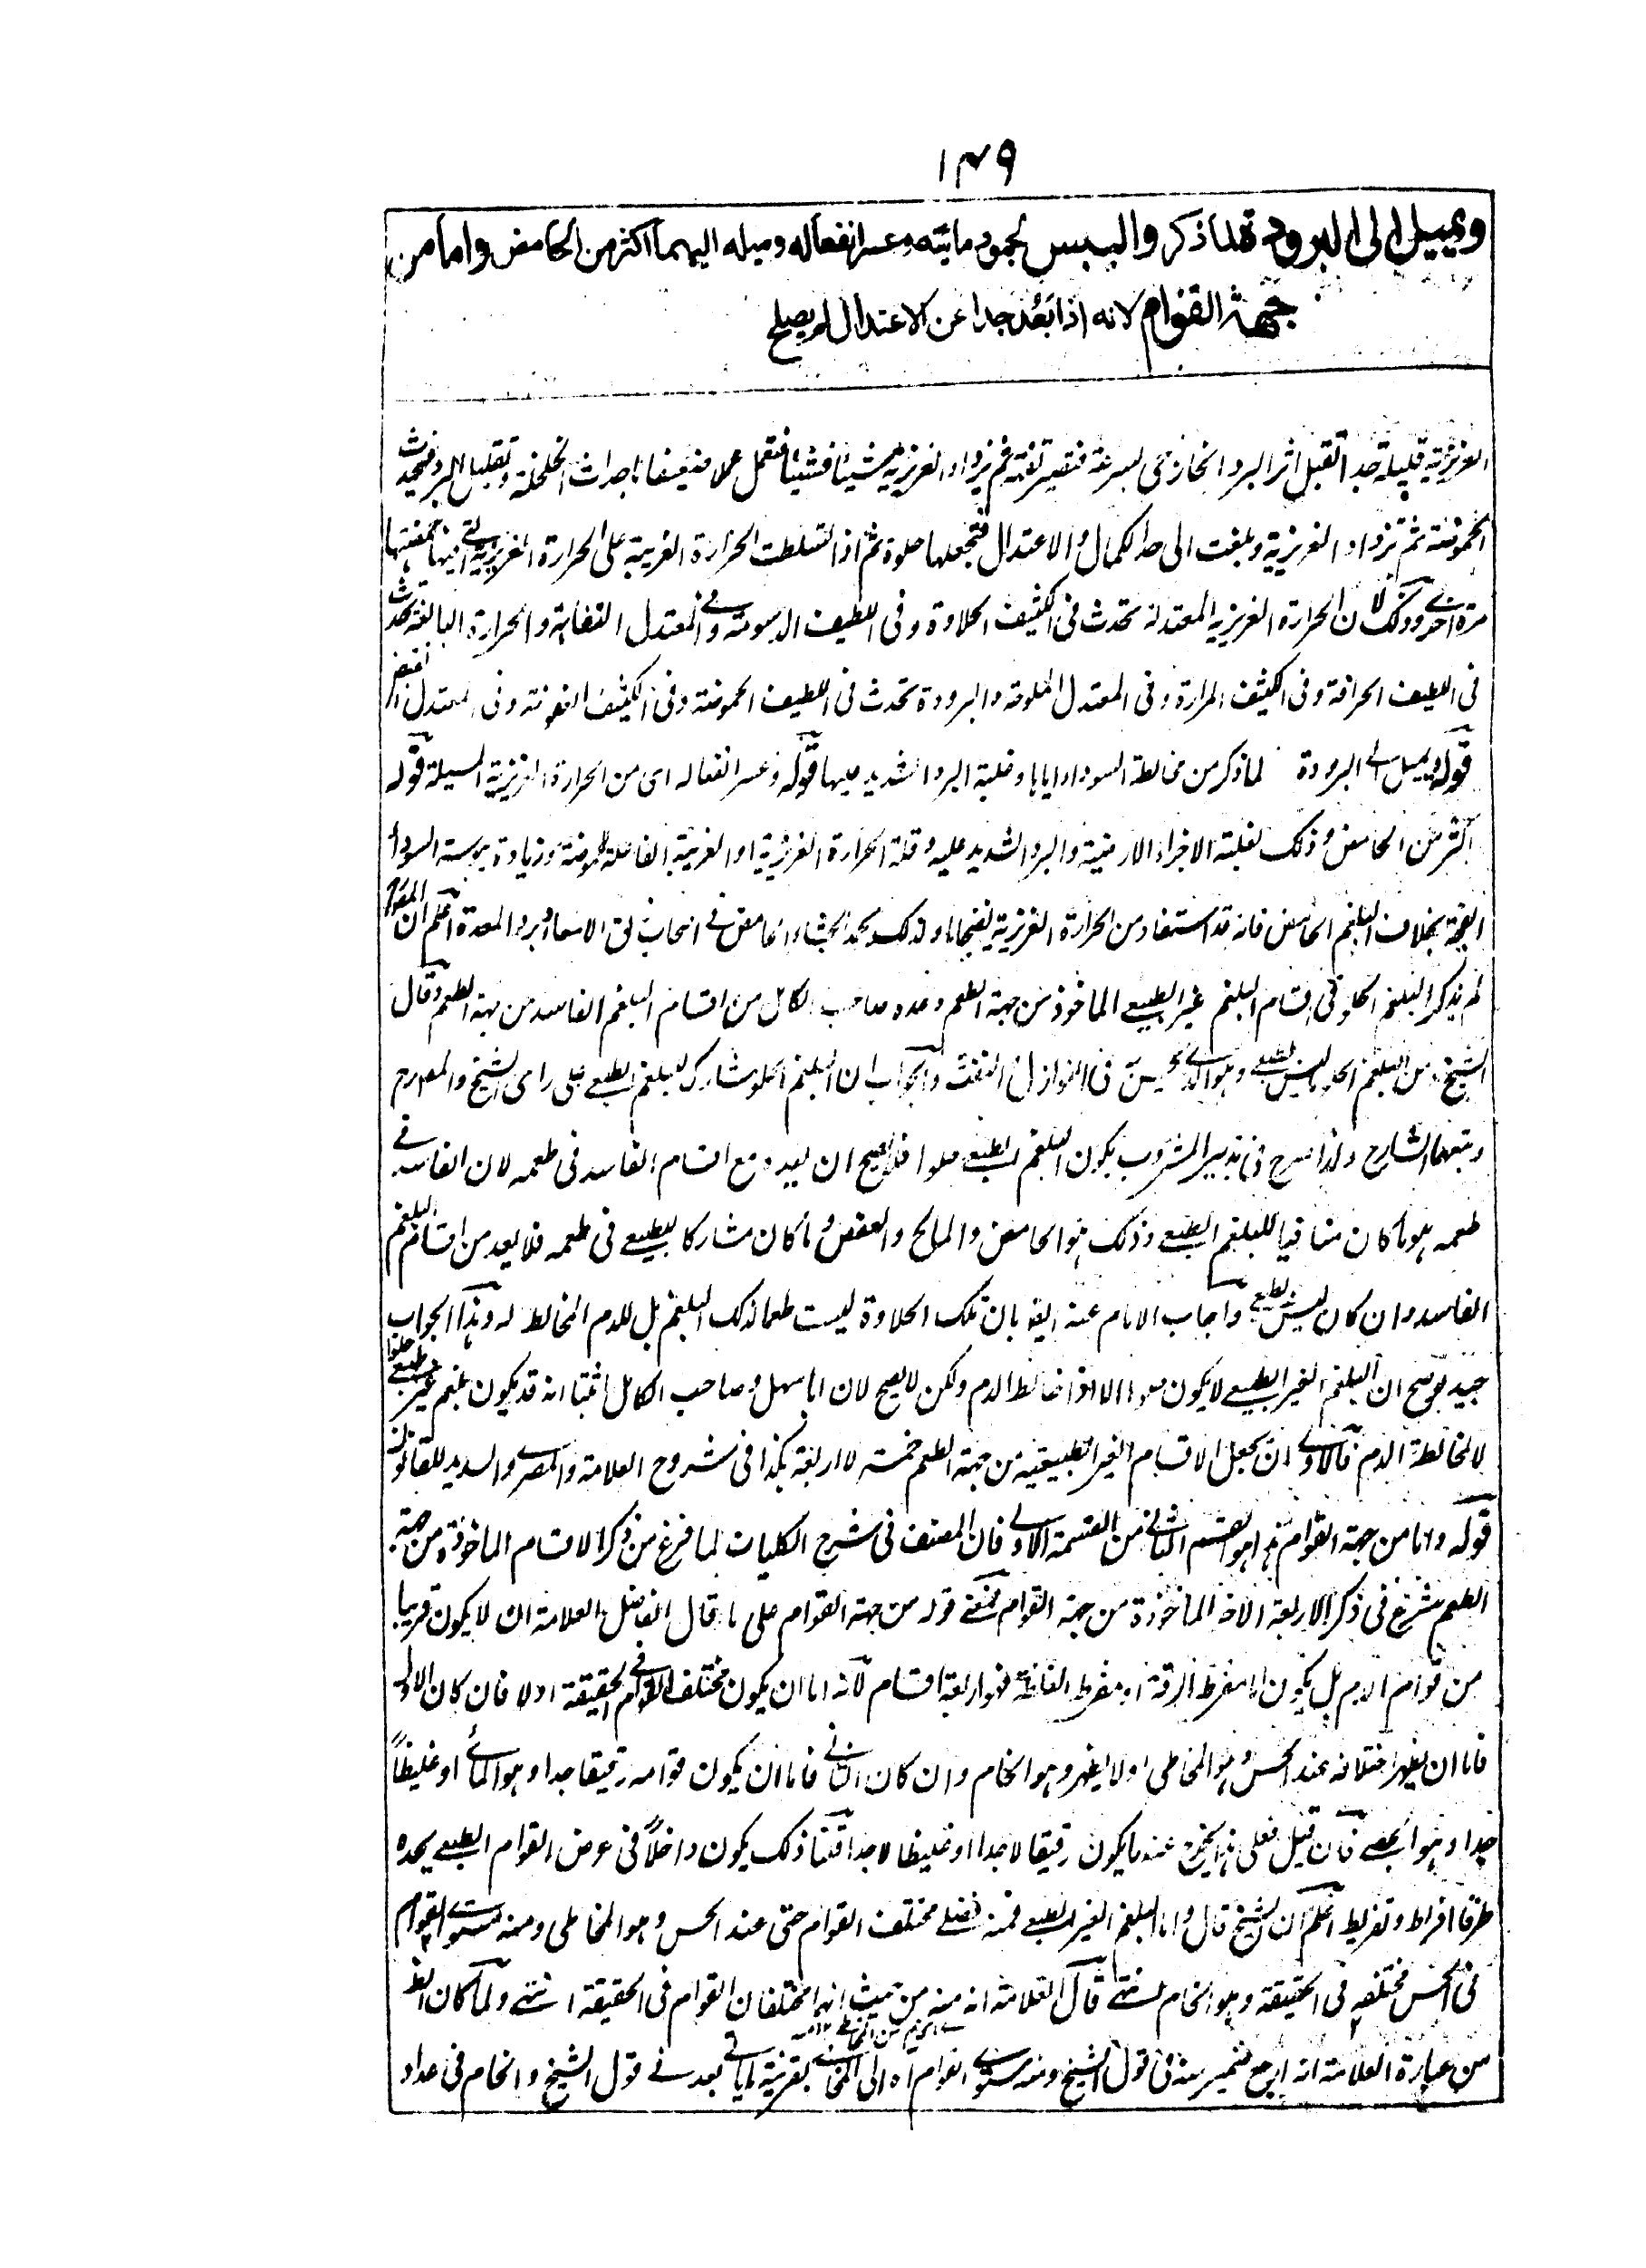 ١٣٩
ويميل الى البرودة لما ذكر واليبس لجمود مائيته وعسر انفعاله وميله اليهما اكثر من الحامض واما من
جهة القوام لانه اذا بَعُد جدا عن الاعتدال لم يصلح
الغريزية قليلة جدا تقبل اثر البرد الخارجى بسرعة فتصير تفهة ثم يزداد الغريزية شيئا فشيئا فتعمل عملا ضعيفا باحداث الخلخلة وتقليل البرد فيحدث
الحموضة ثم تزداد الغريزية وبلغت الى حد الكمال والاعتدال فتجعلها حلوة ثم اذا تسلطت الحرارة الغريبة على الحرارة الغريزية التى فيها
مرة اخرى وذلك لان الحرارة الغريزية المعتدلة تحدث فى الكثيف الحلاوة وفى اللطيف الدسومة وفى المعتدل التفاهة والحرارة البالغة تحدث
فى اللطيف الحرافة وفى الكثيف المرارة وفى المعتدل الملوحة والبرودة تحدث فى اللطيف الحموضة وفى الكثيف العفوصة وفى المعتدل القبض
قوله ويميل الى البرودة لما ذكر من مخالطة السوداء اياها وغلبة البرد الشديد عليها قوله وعسر انفعاله اى من الحرارة الغريزية المسيلة قوله
اكثر من الحامض وذلك لغلبة الاجزاء الارضية والبرد الشديد عليه وقلة الحرارة الغريزية او الغريبة الفاعلة للحموضة وزيادة يبوسة السوداء
الفجة بخلاف البلغم الحامض فانه قد استفاد من الحرارة الغريزية نضجا ما ولذلك يحمد الجشاء الحامض فى اصحاب زلق الامعاء وبرد المعدة اعلم ان المصنف
لم يذكر البلغم الحلو فى اقسام البلغم غير الطبيعى الماخوذ من جهة الطعم وعده صاحب الكامل من اقسام البلغم الفاسد من جهة الطعم وقال
الشيخ من البلغم الحلو ما ليس بطبيعى وهو الذى فى النوازل فى النفث والجواب ان البلغم الحلو مشارك للبلغم الطبيعى على راى الشيخ والمصنف
وتبعهما الشارح ولذا صرح فى تدبير المشروب بكون البلغم الطبيعى حلوا فلا يصح ان يعده مع اقسام الفاسد فى طعمه لان الفاسد فى
طعمه هو ما كان منافيا للبلغم الطبيعى وذلك هو الحامض والمالح والعفص وما كان مشاركا للطبيعى فى طعمه فلا يعد من اقسام البلغم
الفاسد وان كان ليس بطبيعى واجاب الامام عنه ايضا بان تلك الحلاوة ليست طعما لذلك البلغم بل للدم المخالط له وهذا الجواب
جيد لو صح ان البلغم الغير الطبيعى لا يكون حلوا الا اذا خالط الدم ولكن لا يصح لان ابا سهل وصاحب الكامل اثبتا انه قد يكون بلغم غير طبيعى حلوا
لا لمخالطة الدم فالاولى ان يجعل الاقسام الغير الطبيعية من جهة الطعم خمسة لا اربعة هكذا فى شروح العلامة والمصرى والسديد للقانون
قوله واما من جهة القوام هذا هو القسم الثانى من القسمة الاولى فان المصنف فى شرح الكليات لما فرغ من ذكر الاقسام الماخوذة من جهة
الطعم شرع فى ذكر الاربعة الاخر الماخوذة من جهة القوام فمعنى قوله من جهة القوام على ما قال الفاضل العلامة ان لا يكون قريبا
من قوام الدم بل يكون اما مفرط الرقة او مفرط الغلظ فهو اربعة اقسام لانه اما ان يكون مختلف القوام فى الحقيقة او لا فان كان الاول
فاما ان يظهر اختلافه عند الحس وهو المخاطى او لا يظهر وهو الخام وان كان الثانى فاما ان يكون قوامه رقيقا جدا وهو المائى او غليظاً
جدا وهو الجصى فان قيل فعلى هذا يخرج عنه ما يكون رقيقا لا جدا او غليظا لا جدا قلنا ذلك يكون داخلاً فى عرض القوام الطبيعى يحده
طرفا افراط وتفريط اعلم ان الشيخ قال واما البلغم الغير الطبيعى فمنه فضلى مختلف القوام حتى عند الحس وهو المخاطى ومنه مستوى القوام
فى الحس مختلفه فى الحقيقة وهو الخام انتهى قال العلامة انه منه من حيث انهما مختلفان القوام فى الحقيقة انتهى ولما كان الظ
من عبارة العلامة انه ارجع ضمير منه فى قول الشيخ ومنه مستوى القوام اه الى المخاطى بقرينة ما ياتى بعد فى قول الشيخ والخام فى عداد